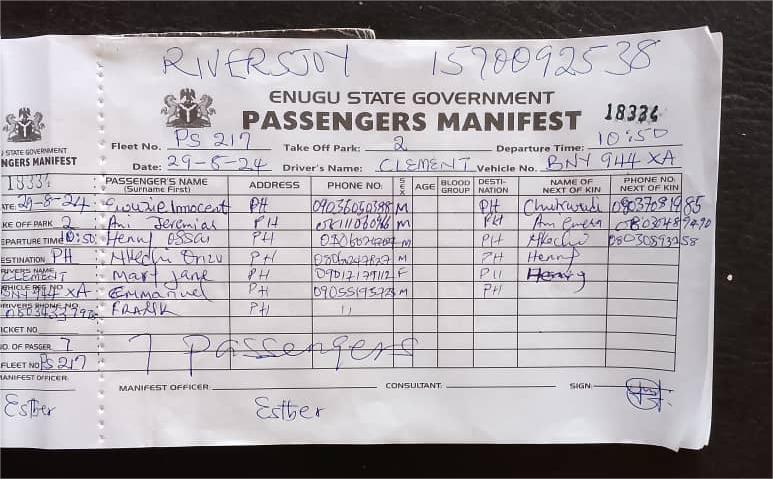 RIVERSJOY 1570092538
ENUGU STATE GOVERNMENT
PASSENGERS MANIFEST 18334
Fleet No. PS 217 Take Off Park: 2 Departure Time: 10:50
Date: 29-8-24 Driver's Name: CLEMENT Vehicle No. BNY 944 XA
PASSENGER'S NAME (Surname First) ADDRESS PHONE NO: SEX AGE BLOOD GROUP DESTI-NATION NAME OF NEXT OF KIN PHONE NO: NEXT OF KIN
Innocent PH 09036050388 M PH 08037081985
Ani Jeremiah PH M PH Ani
Henry Ossai PH M PH Nkechi 08030893258
Nkechi PH M PH Henry
Mary Jane PH F PH Henry
Emmanuel PH 09055195723 M PH
FRANK PH "
7 Passengers
MANIFEST OFFICER: Esther CONSULTANT: SIGN:
STATE GOVERNMENT
NGERS MANIFEST
18334
ATE: 29-8-24
KE OFF PARK 2
EPARTURE TIME 10:50
ESTINATION PH
RIVERS NAME CLEMENT
VEHICLE REG NO BNY 944 XA
RIVERS PHONE NO
ICKET NO.
O. OF PASGER. 7
FLEET NO PS 217
MANIFEST OFFICER:
Esther